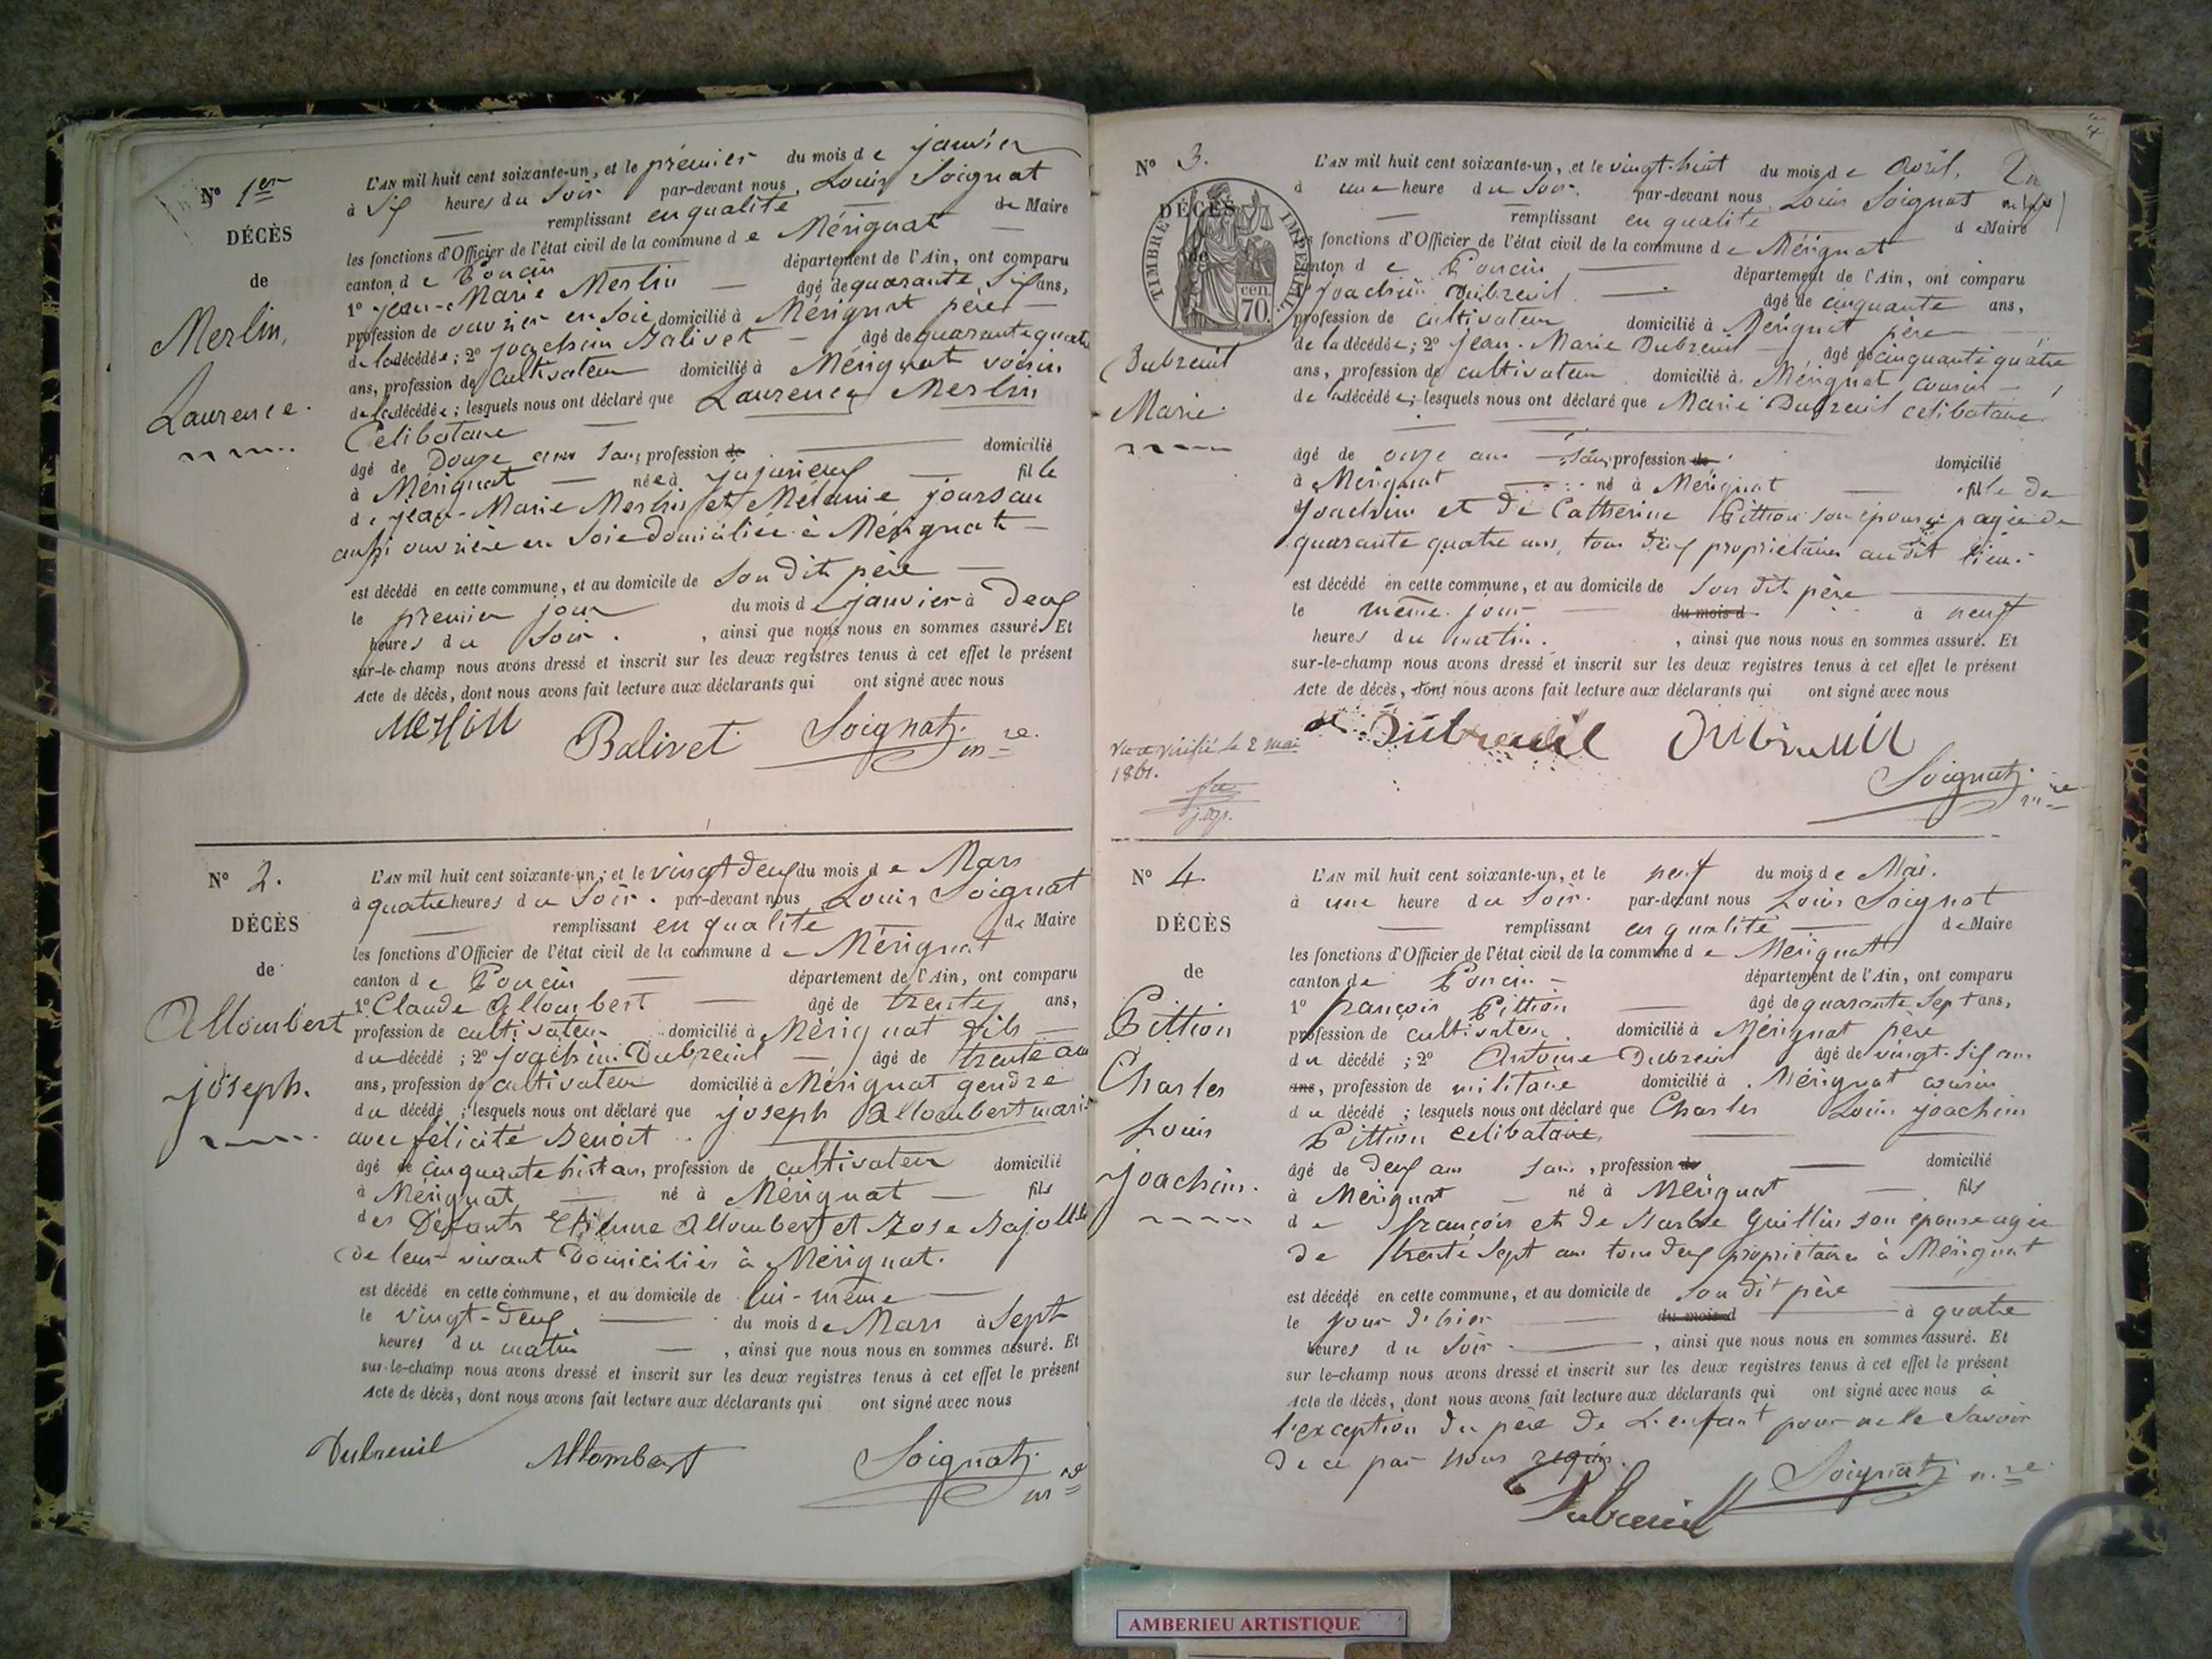 N° 1er
DÉCÈS
de
Merlin,
Laurence.
L'AN mil huit cent soixante-un, et le premier du mois de janvier
à six heures du soir par-devant nous, Louis Soignat
remplissant en qualité de Maire
les fonctions d'Officier de l'état civil de la commune de Mérignat
canton de Poncin département de l'Ain, ont comparu
1° jean-Marie Merlin âgé de quarante six ans,
profession de ouvrier en soie domicilié à Mérignat père
de la décédée; 2° joachim Balivet âgé de quarante quatre
ans, profession de Cultivateur domicilié à Mérignat voisin
de la décédée; lesquels nous ont déclaré que Laurence Merlin
Celibataire
âgé de Douze ans sans profession de domicilié
à Mérignat née à jujurieux fille
de jean-Marie Merlin et Mélanie joursau
aussi ouvrière en Soie domiciliée à Mérignat
est décédé en cette commune, et au domicile de son dit père
le premier jour du mois de janvier à deux
heures du soir. , ainsi que nous nous en sommes assuré. Et
sur-le-champ nous avons dressé et inscrit sur les deux registres tenus à cet effet le présent
Acte de décès, dont nous avons fait lecture aux déclarants qui ont signé avec nous
Merlin Balivet Soignat mre.
N° 2.
DÉCÈS
de
Allombert
joseph.
L'AN mil huit cent soixante-un, et le vingt deux du mois de Mars
à quatre heures du Soir. par-devant nous Louis Soignat
remplissant en qualité de Maire
les fonctions d'Officier de l'état civil de la commune de Mérignat
canton de Poncin département de l'Ain, ont comparu
1° Claude Allombert âgé de trente ans,
profession de cultivateur domicilié à Mérignat fils
du décédé ; 2° joachim Dubreuil âgé de trente ans
ans, profession de cultivateur domicilié à Mérignat gendre
du décédé ; lesquels nous ont déclaré que joseph Allombert mari
avec félicité Benoit
âgé de cinquante huit ans, profession de cultivateur domicilié
à Mérignat né à Mérignat fils
des Défunts Etienne Allombert et Rose
de leur vivant Domiciliés à Mérignat.
est décédé en cette commune, et au domicile de lui-même
le vingt-deux du mois de Mars à Sept
heures du matin , ainsi que nous nous en sommes assuré. Et
sur-le-champ nous avons dressé et inscrit sur les deux registres tenus à cet effet le présent
Acte de décès, dont nous avons fait lecture aux déclarants qui ont signé avec nous
Dubreuil Allombert Soignat mre
N° 3.
DÉCÈS
de
TIMBRE IMPÉRIAL
70. cen.
Dubreuil
Marie
vu et vérifié le 2 mai
1861.
L'AN mil huit cent soixante-un, et le vingt-huit du mois de avril,
à une heure du soir. par-devant nous Louis Soignat
remplissant en qualité de Maire
les fonctions d'Officier de l'état civil de la commune de Mérignat
canton de Poncin département de l'Ain, ont comparu
joachim Dubreuil âgé de cinquante ans,
profession de cultivateur domicilié à Mérignat père
de la décédée; 2° jean-Marie Dubreuil âgé de cinquante quatre
ans, profession de cultivateur domicilié à Mérignat cousin
de la décédée; lesquels nous ont déclaré que Marie Dubreuil celibataire
âgé de onze ans sans profession de domicilié
à Mérignat né à Mérignat fille de
joachim et de Catherine Pittion son épouse agée de
quarante quatre ans, tous deux propriétaires au dit lieu.
est décédé en cette commune, et au domicile de son dit père
le même jour du mois d à neuf
heures du matin. , ainsi que nous nous en sommes assuré. Et
sur-le-champ nous avons dressé et inscrit sur les deux registres tenus à cet effet le présent
Acte de décès, dont nous avons fait lecture aux déclarants qui ont signé avec nous
Dubreuil Dubreuil
Soignat mre
N° 4.
DÉCÈS
de
Pittion
Charles
Louis
joachim.
L'AN mil huit cent soixante-un, et le neuf du mois de Mai.
à une heure du Soir. par-devant nous Louis Soignat
remplissant en qualité de Maire
les fonctions d'Officier de l'état civil de la commune de Mérignat
canton de Poncin département de l'Ain, ont comparu
1° françois Pittion âgé de quarante sept ans,
profession de cultivateur domicilié à Mérignat père
du décédé ; 2° Antoine Dubreuil âgé de vingt-six ans
ans, profession de militaire domicilié à Mérignat cousin
du décédé ; lesquels nous ont déclaré que Charles Louis joachim
Pittion celibataire,
âgé de deux ans sans , profession de domicilié
à Mérignat né à Mérignat fils
de françois et de Barbe Guillin son épouse agée
de trente sept ans tous deux propriétaires à Mérignat
est décédé en cette commune, et au domicile de son dit père
le jour d'hier du mois d à quatre
heures du soir , ainsi que nous nous en sommes assuré. Et
sur-le-champ nous avons dressé et inscrit sur les deux registres tenus à cet effet le présent
Acte de décès, dont nous avons fait lecture aux déclarants qui ont signé avec nous à
l'exception du père de L'enfant pour ne le savoir
de ce par nous requis.
Dubreuil Soignat mre
AMBERIEU ARTISTIQUE